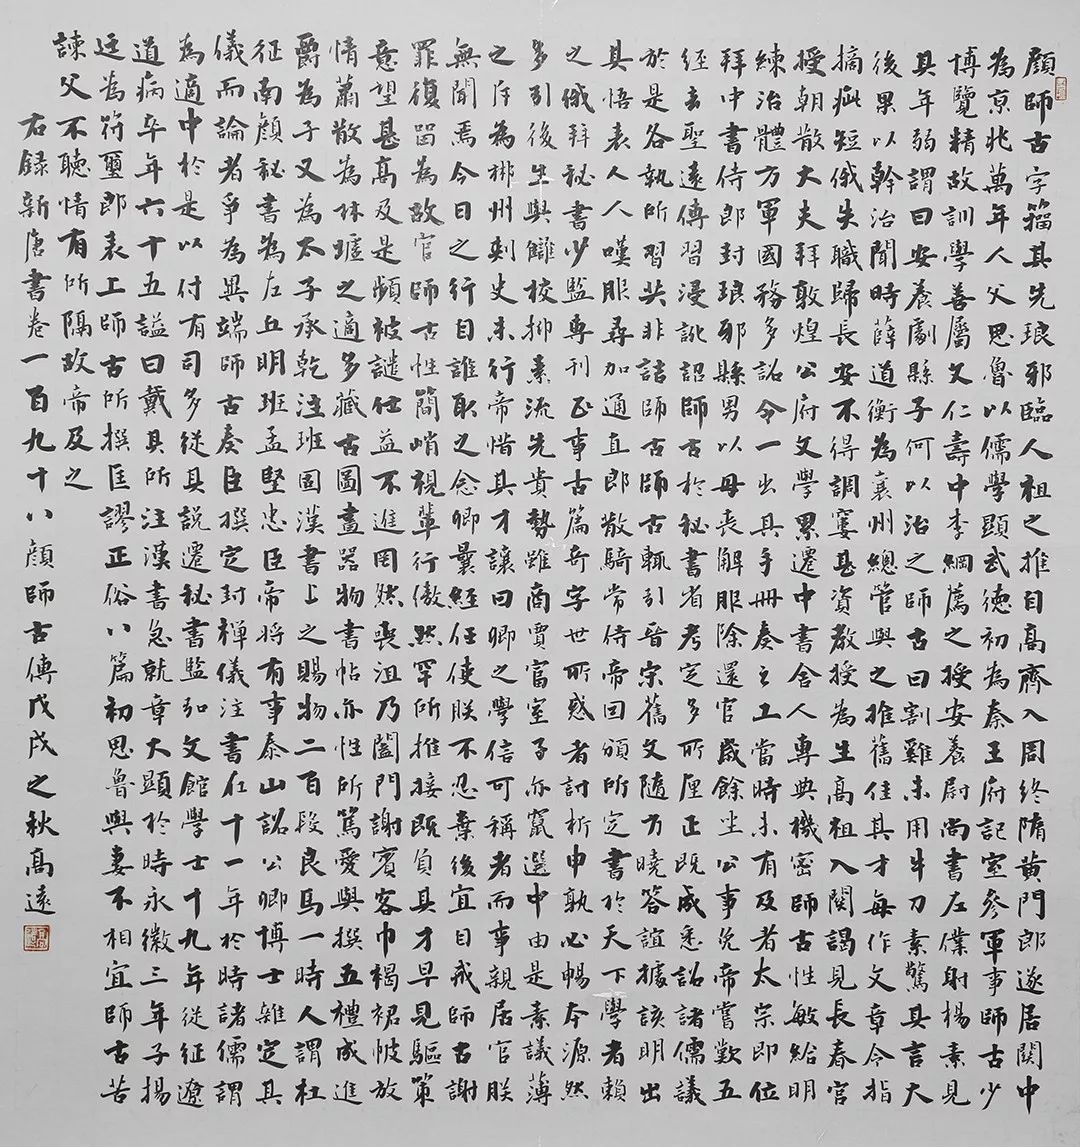 顏師古字籀其先琅邪臨人祖之推自高齊入周終隋黃門郎遂居關中
為京兆萬年人父思魯以儒學顯武德初為秦王府記室參軍事師古少
博覽精故訓學善屬文仁壽中李綱薦之授安養尉尚書左僕射楊素見
其年弱謂曰安養劇縣子何以治之師古曰割雞未用牛刀素驚其言大
後果以幹治聞時薛道衡為襄州總管與之推舊佳其才每作文章令指
摘疵短俄失職歸長安不得調窶甚資教授為生高祖入關謁見長春宮
授朝散大夫拜敦煌公府文學累遷中書舍人專典機密師古性敏給明
練治體方軍國務多詔令一出其手冊奏之工當時未有及者太宗即位
拜中書侍郎封琅邪縣男以母喪解服除還官歲餘坐公事免帝嘗歎五
經去聖遠傳習浸訛詔師古於秘書省考定多所厘正既成悉詔諸儒議
於是各執所習共非詰師古師古輒引晉宋舊文隨方曉答誼據該明出
其悟表人人嘆服尋加通直郎散騎常侍帝因頒所定書於天下學者賴
之俄拜秘書少監專刊正事古篇奇字世所惑者討析申孰必暢本源然
多引後生與讎校抑素流先貴勢雖商賈富室子亦竄選中由是素議薄
之斥為郴州刺史未行帝惜其才讓曰卿之學信可稱者而事親居官朕
無聞焉今日之行自誰取之念卿曩經任使朕不忍棄後宜自戒師古謝
罪復留為故官師古性簡峭視輩行傲然罕所推接既負其才早見驅策
意望甚高及是頻被譴仕益不進罔然喪沮乃闔門謝賓客巾褐裙帔放
情蕭散為林墟之適多藏古圖畫器物書帖亦性所篤愛與撰五禮成進
爵為子又為太子承乾注班固漢書上之賜物二百段良馬一時人謂杜
征南顏秘書為左丘明班孟堅忠臣帝將有事泰山詔公卿博士雜定其
儀而論者爭為異端師古奏臣撰定封禪儀注書在十一年於時諸儒謂
為適中於是以付有司多從其說遷秘書監弘文館學士十九年從征遼
道病卒年六十五謚曰戴其所注漢書急就章大顯於時永徽三年子揚
廷為符璽郎表上師古所撰匡謬正俗八篇初思魯與妻不相宜師古苦
諫父不聽情有所隔故帝及之
右錄新唐書卷一百九十八顏師古傳戊戌之秋高遠